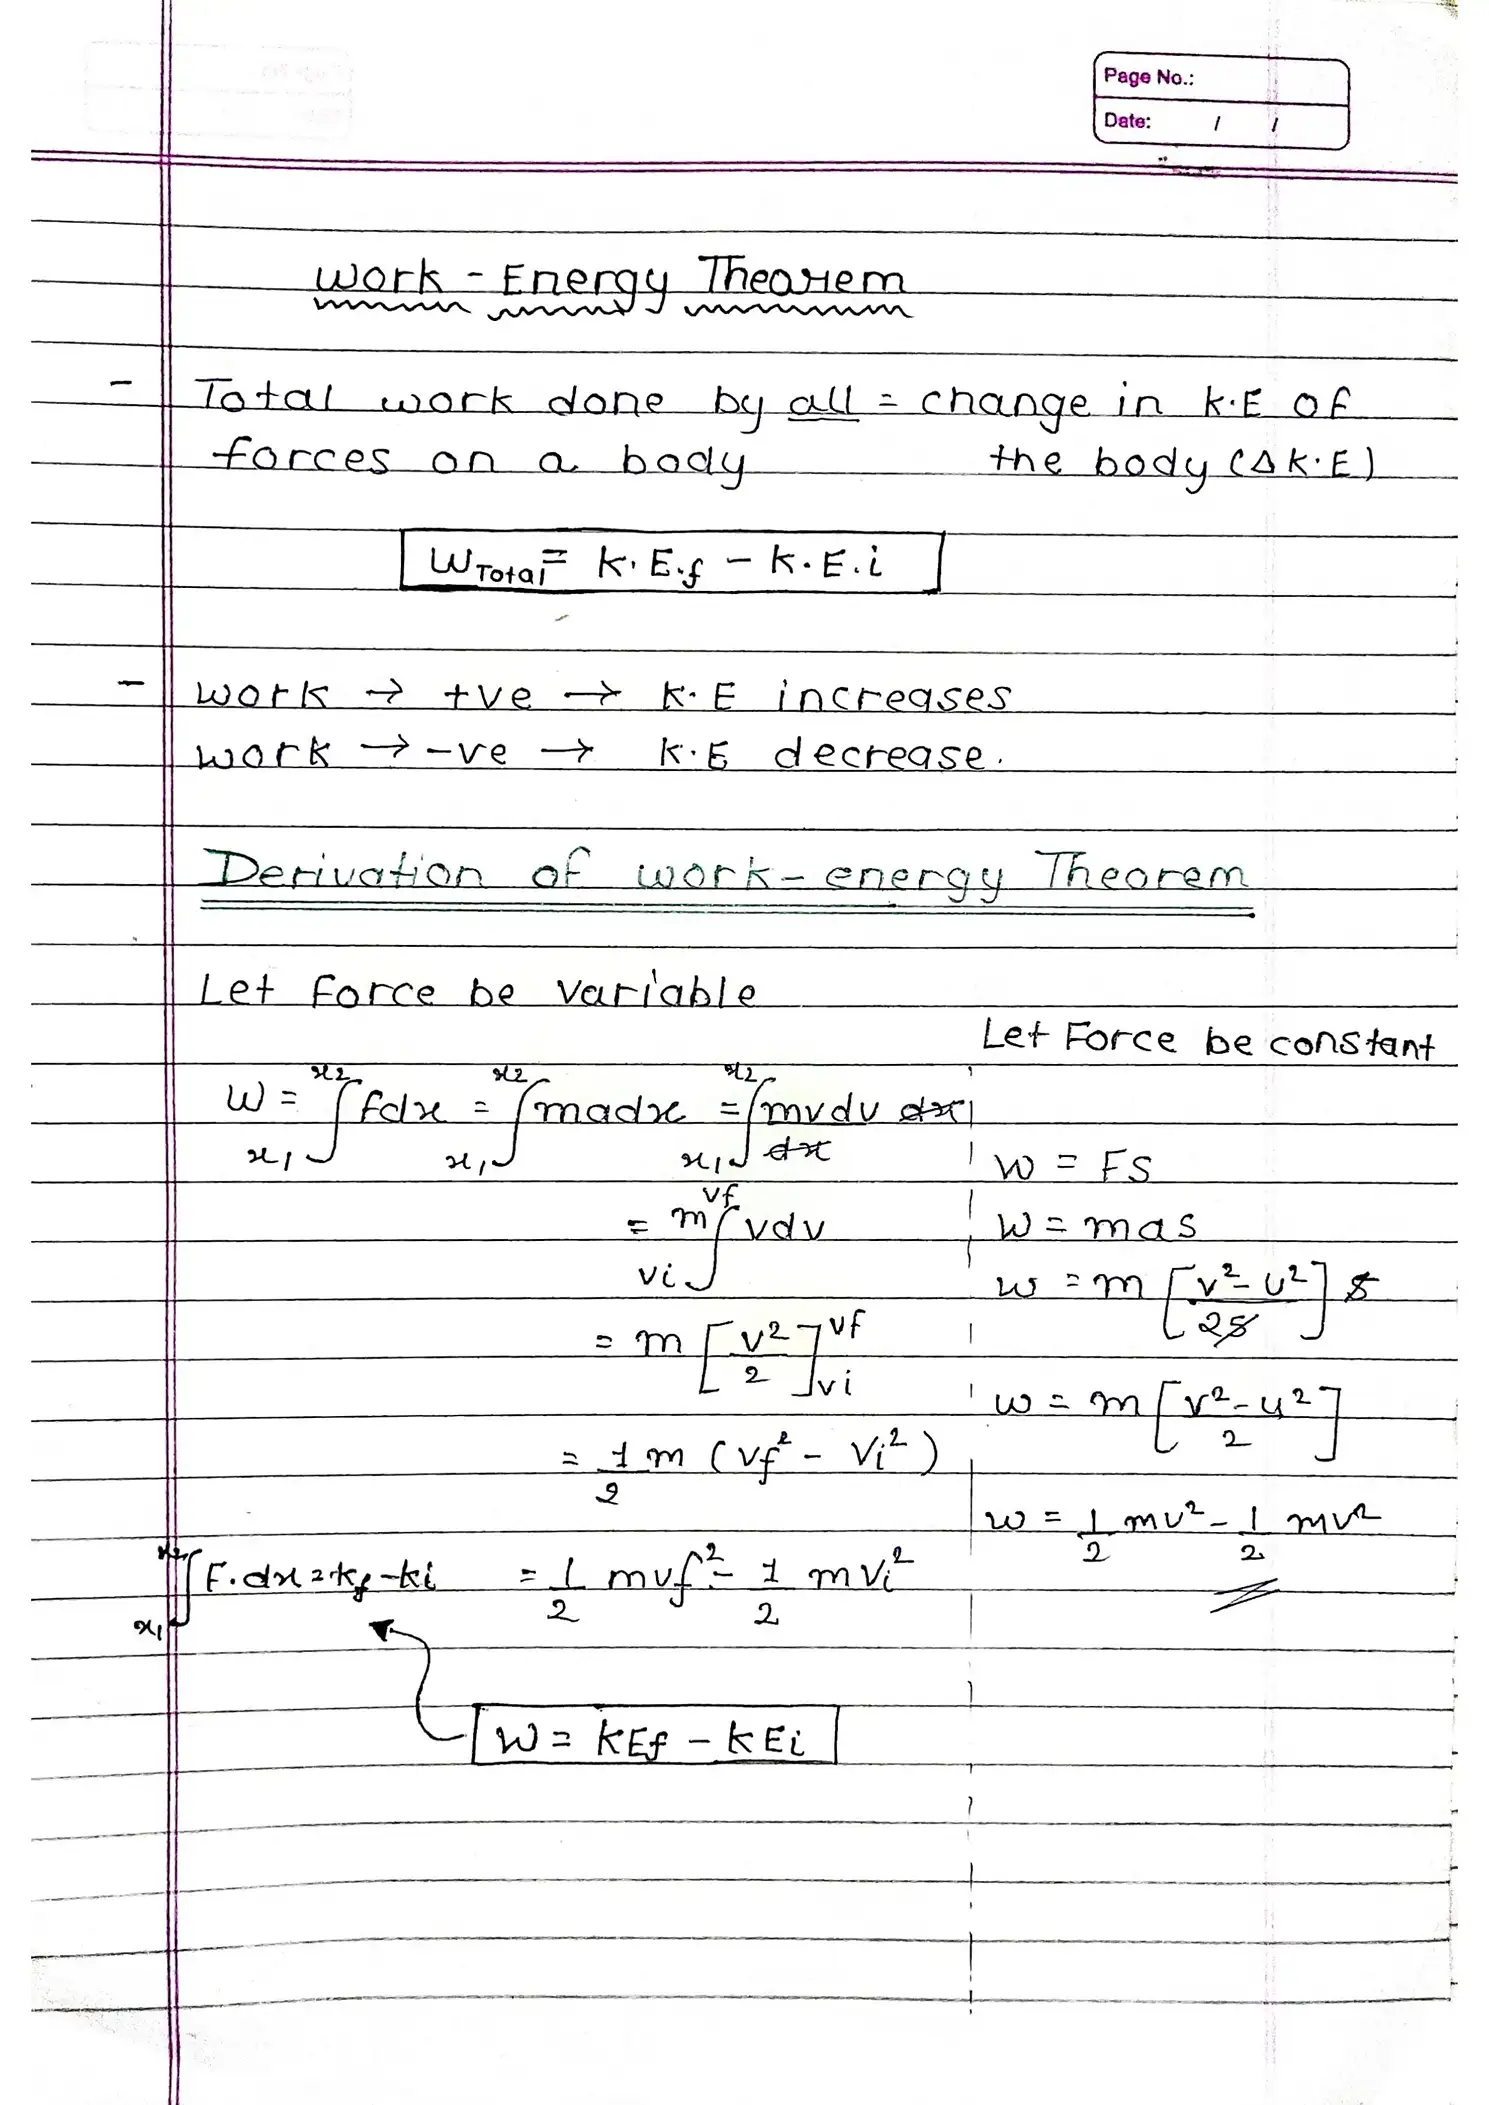 Page No.:
Date: / /
Work - Energy Theorem
- Total work done by all = change in K.E of
forces on a body the body (Δ K.E)
W Total = K.E.f - K.E.i
- work → +ve → K.E increases
work → -ve → K.E decrease.
Derivation of work-energy Theorem
Let force be variable
W = ∫x₁^x₂ Fdx = ∫x₁^x₂ madx = ∫x₁^x₂ mvdv/dx dx
= m ∫vi^vf vdv
= m [v²/2]vi^vf
= 1/2 m (vf² - vi²)
∫x₁^x₂ F.dx = kf - ki = 1/2 mvf² - 1/2 mvi²
W = KEf - KEi
Let Force be constant
W = FS
W = mas
W = m [v² - u²/2s] s
W = m [v² - u²/2]
W = 1/2 mv² - 1/2 mv²